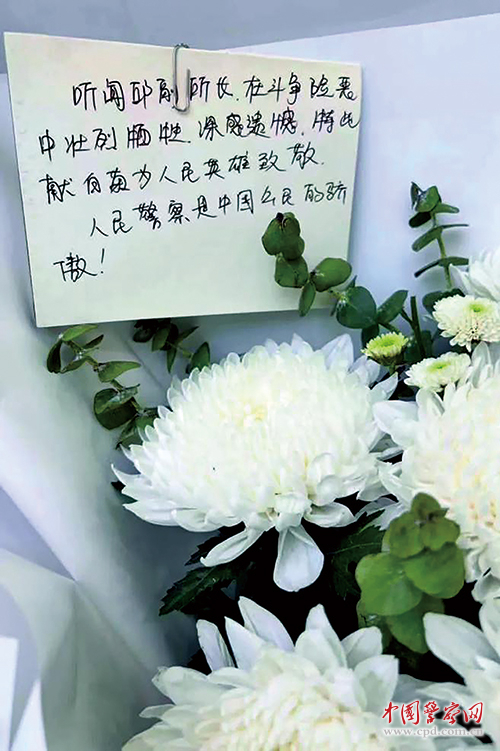 听闻邱副所长在斗争险恶
中壮烈牺牲.深感遗憾,特此
献白菊为人民英雄致敬.
人民警察是中国公民的骄
傲!
中国警察网
www.cpd.com.cn